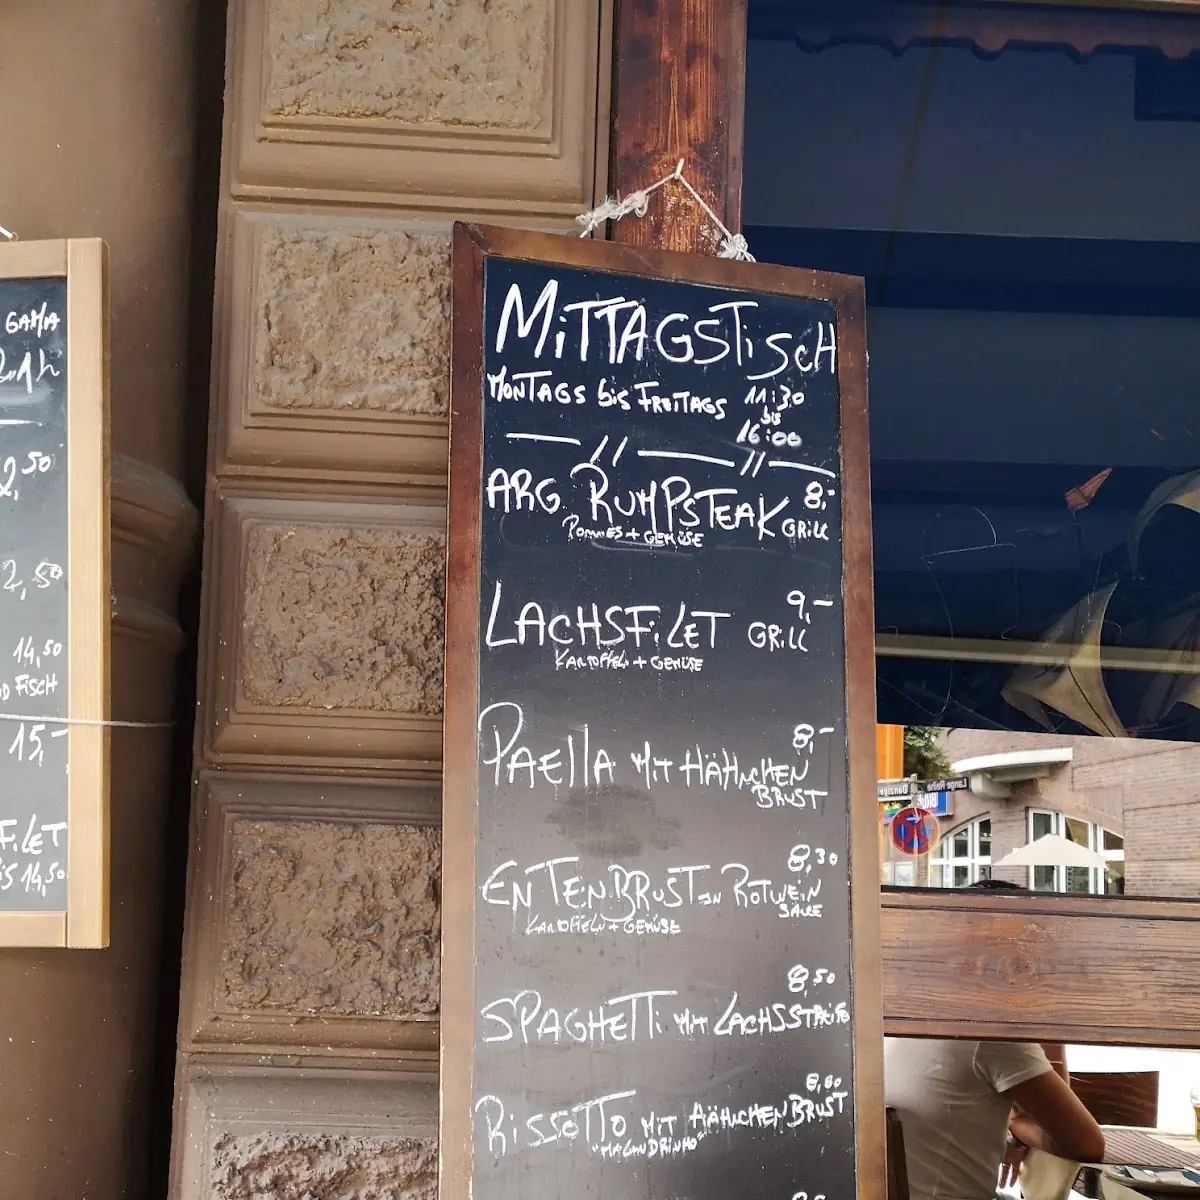 GAMBA
2,50
2,50
14,50
FISCH
15,-
FILET
14,50
MiTTAGSTiSCH
MONTAGS bis FREITAGS 11:30
bis
16:00
ARG. RUMPSTEAK 8,-
POMMES + GEMÜSE GRiLL
LACHSFiLET 9,-
GRiLL
KARTOFFELN + GEMÜSE
PAELLA MiT HÄHNCHEN 8,-
BRUST
ENTENBRUST IN ROTWEIN 8,30
SAUCE
KARTOFFELN + GEMÜSE
8,50
SPAGHETTi MiT LACHSSTREIFEN
RiSSOTTO MiT HÄHNCHENBRUST
Lange Reihe